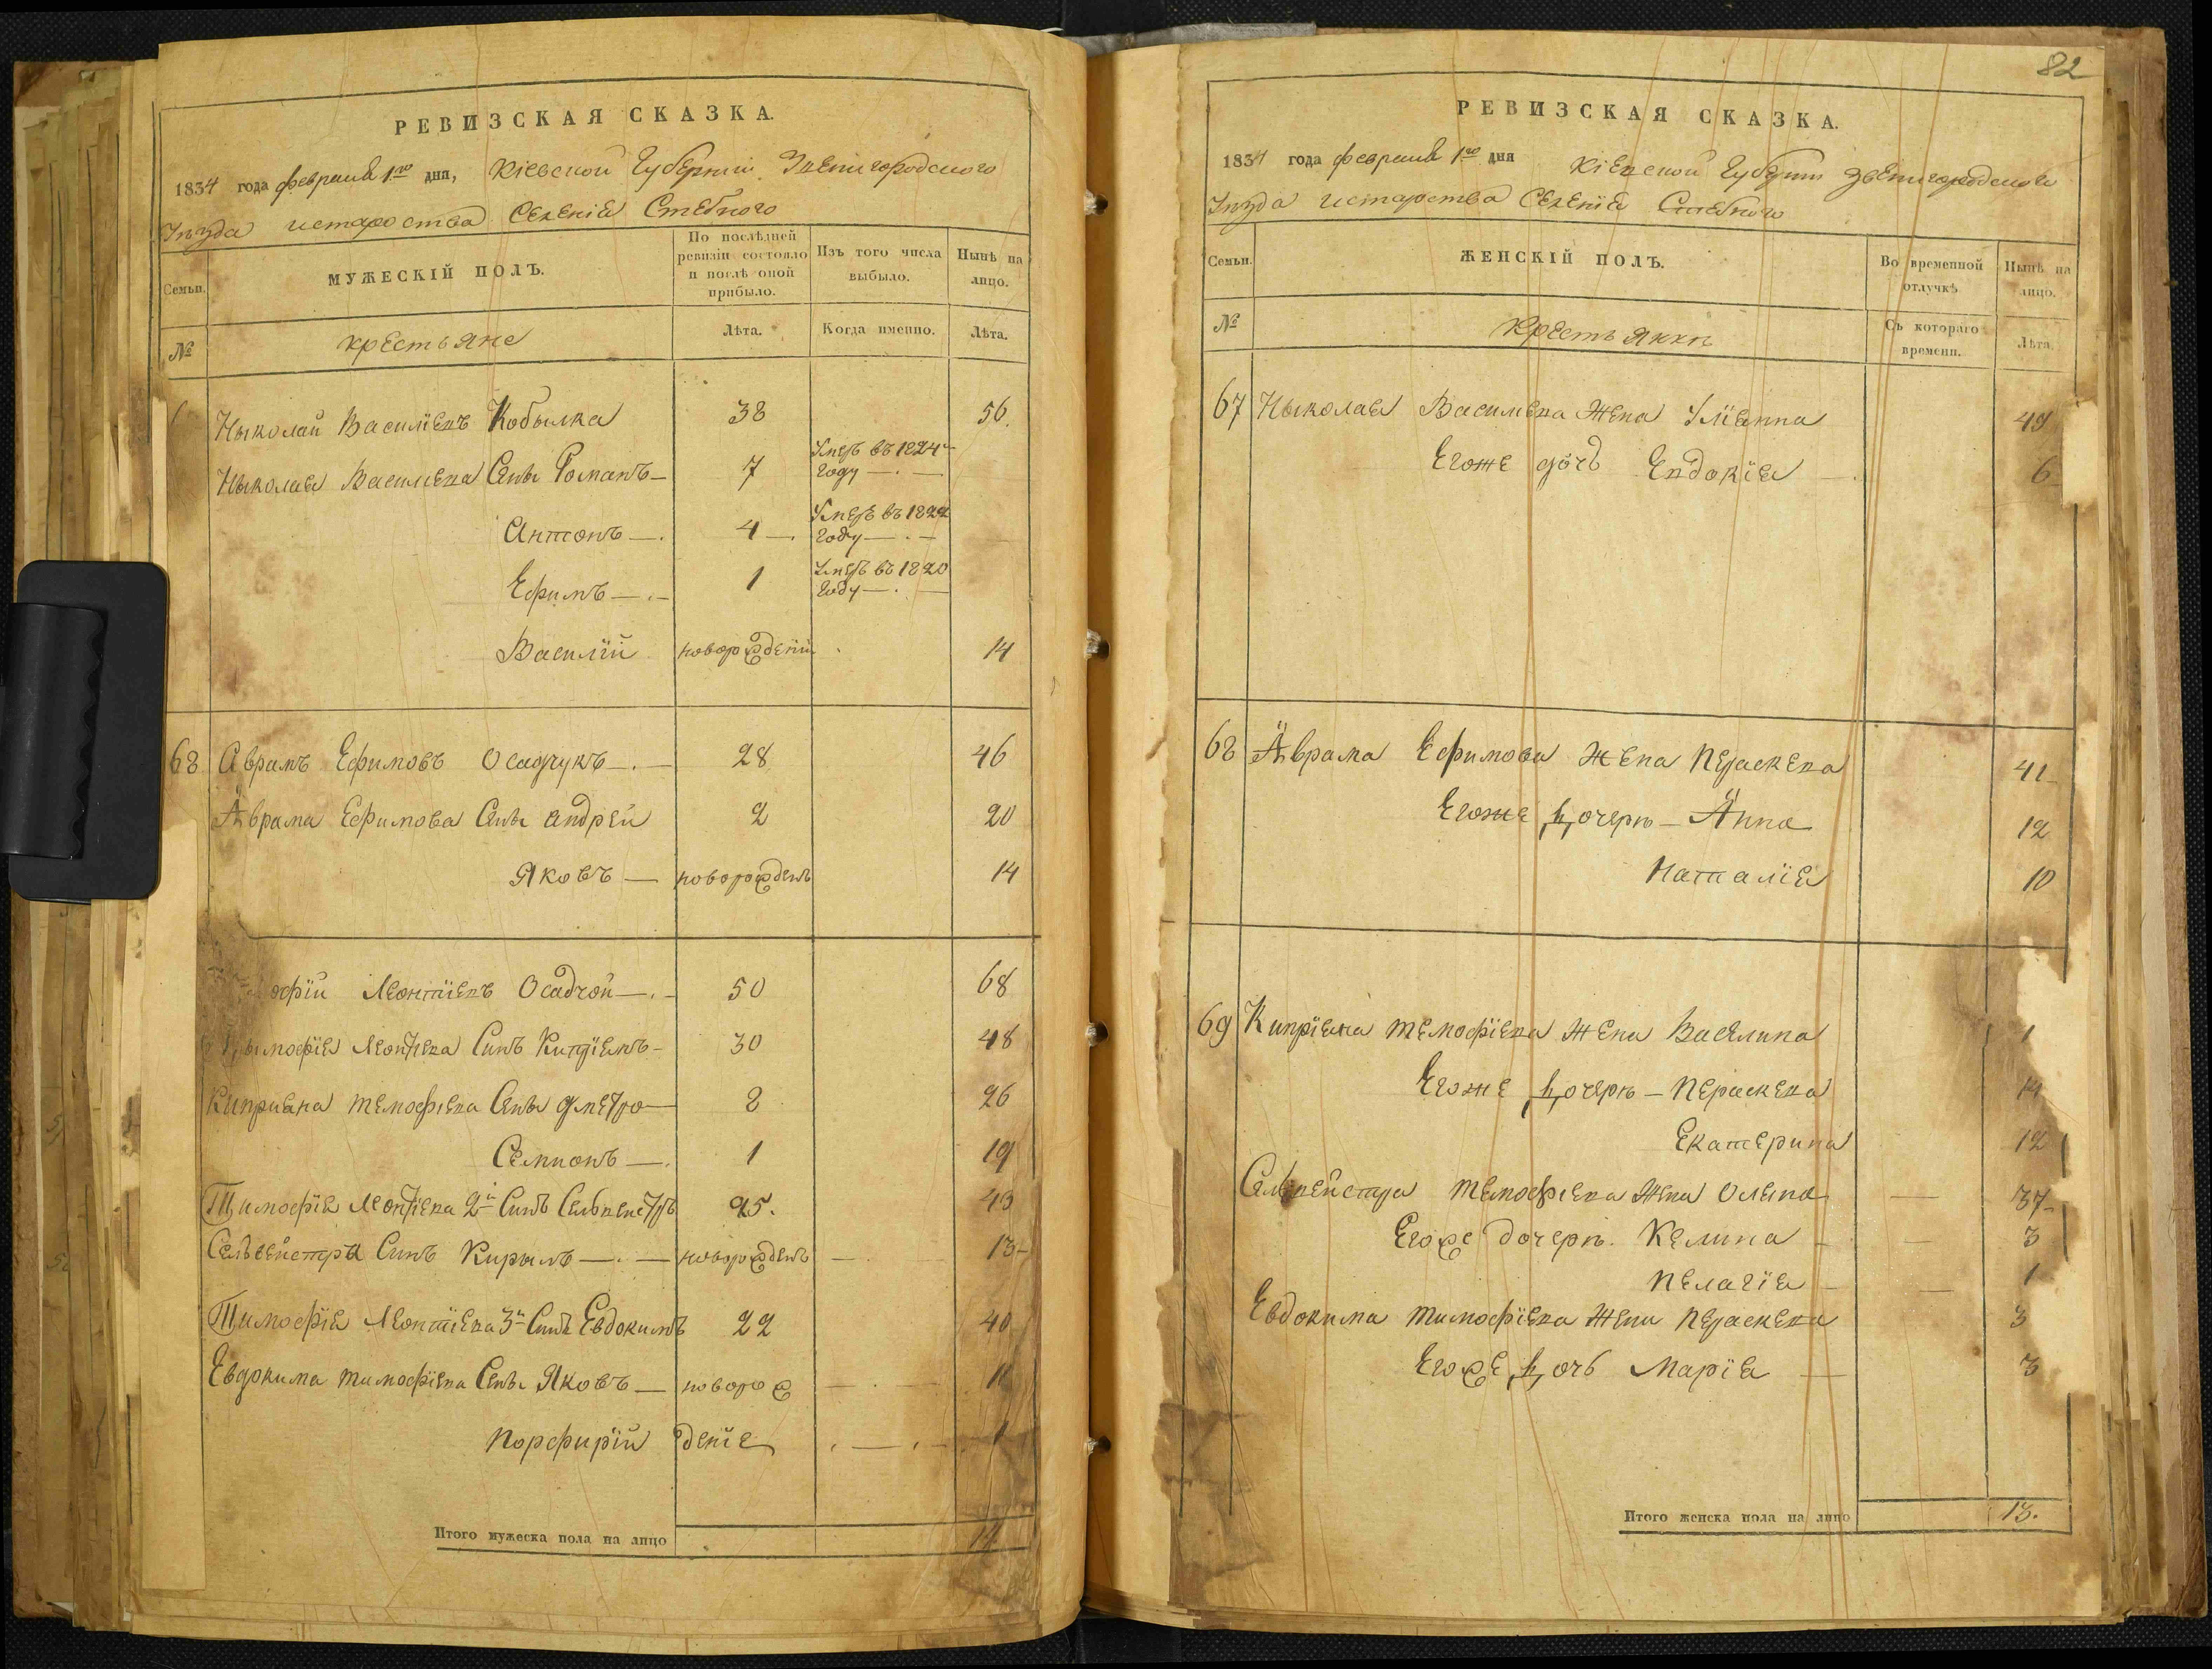 РЕВИЗСКАЯ СКАЗКА.
1834 года февраля 1го дня, Кіевской Губерніи Звенигородского
Уезда истароства Селенія Стебного
Семьи.
МУЖЕСКІЙ ПОЛЪ.
По послѣдней ревизіи состояло и послѣ оной прибыло.
Изъ того числа выбыло.
Нынѣ на лицо.
№
крестьяне
Лѣта.
Когда именно.
Лѣта.
Ныколай Василіевъ Кобылка 38 56.
Ныколая Василиева Сынъ Романъ— 7 Умеръ въ 1824 году —.—
Антонъ—. 4—. Умеръ въ 1822 году —.—
Ефимъ—.— 1 Умеръ въ 1820 году —.—
Василій новорожденій 14
68 Аврамъ Ефимовъ Осадчукъ—.— 28 46
Аврама Ефимова Сынъ андрей 2 20
Яковъ— новорожденъ 14
офій Леонтіевъ Осадчой—.— 50 68
Тимофія Леонтіева Синъ Кипріянъ— 30 48
Киприяна темофіева Сынъ дметро— 8 26
Семионъ—. 1 19
Тимофія Леонтіева 2й Синъ Сельвенстръ 25. 43
Сельвейстра Синъ Кирылъ—.— новорожденъ — 13—
Тимофія Леонтіева 3й Синъ Евдокимъ 22 40
Евдокима тимофіева Сынъ Яковъ— новорож —.— 11
Порфирій деніе .—.— 1
Итого мужеска пола на лицо 14
82
РЕВИЗСКАЯ СКАЗКА.
1834 года февраля 1го дня Кіевской Губерніи Звенигородского
Уезда истарства Селенія Стебного
Семьи.
ЖЕНСКІЙ ПОЛЪ.
Во временной отлучкѣ
Нынѣ на лицо.
№
Крестьянкѣ
Съ котораго времени.
Лѣта.
67 Ныколая Василиева жена Уліянна 49
Егоже дочь Евдокія —. 6
68 Аврама Ефимова жена Пераскева 41—
Егоже дочерѣ— Анна 12
Наталія 10
69 Кипріяна темофіева жена Васелина
Егоже дочерѣ— Пераскева 14
Екатерина 12
Сельвейстра темофіева жена Олена — 37—
Егоже дочерѣ. Келина — 3
Пелагія — — 1
Евдокима тимофіева жена Пераскева 3
Егоже дочь Марія — 3
Итого женска пола на лицо 13.